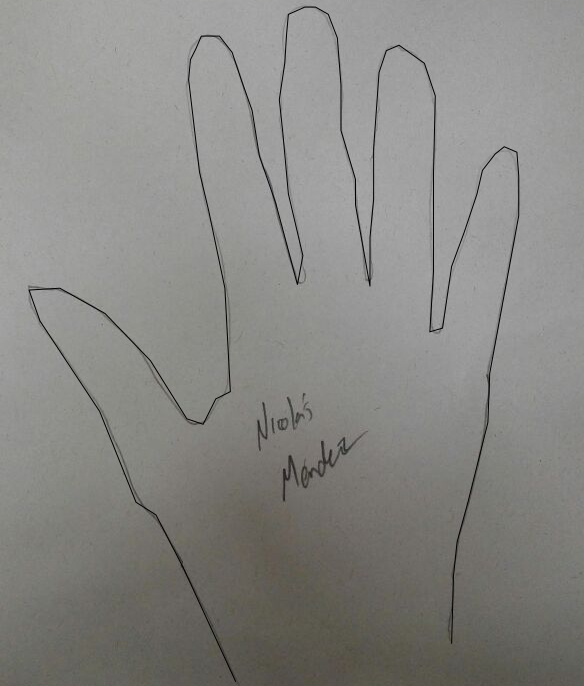 Nicolás
Méndez